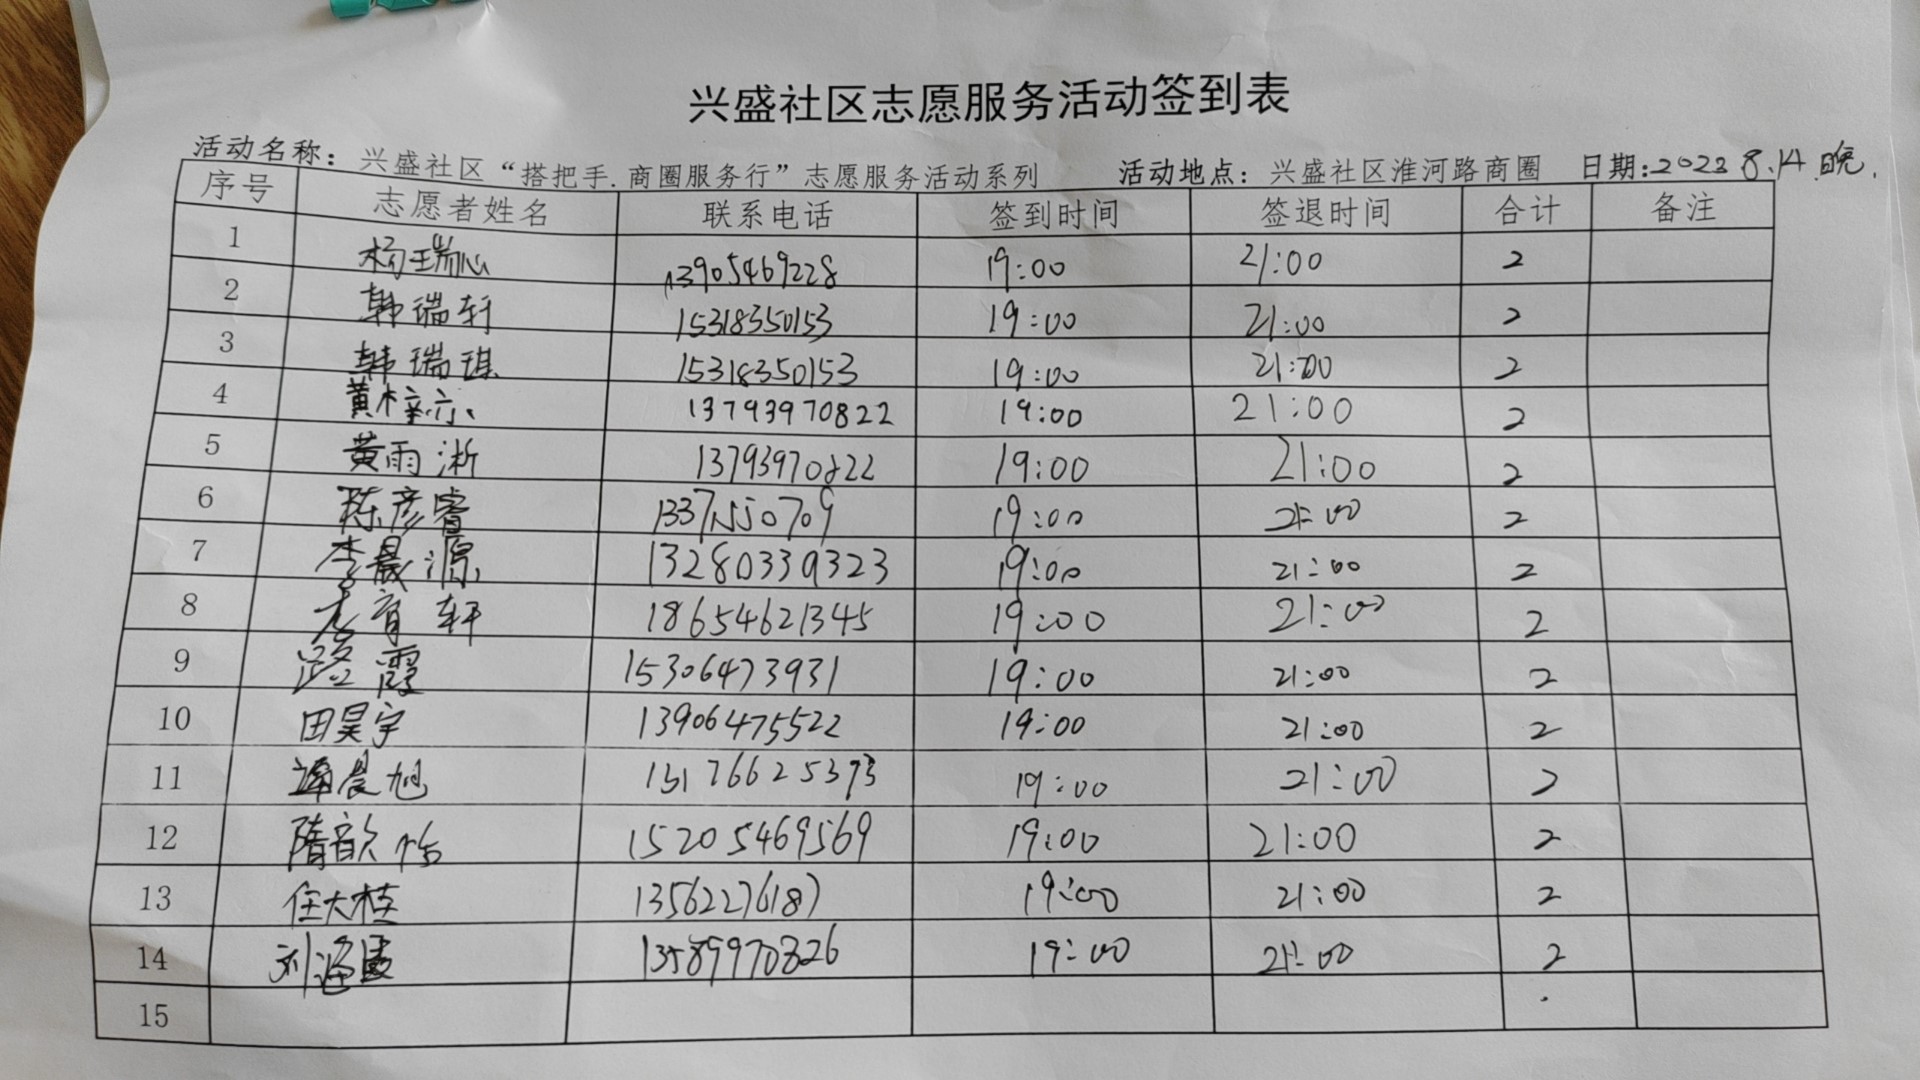 兴盛社区志愿服务活动签到表
活动名称：兴盛社区“搭把手.商圈服务行”志愿服务活动系列 活动地点：兴盛社区淮河路商圈 日期:2023 8.14.晚.
序号 志愿者姓名 联系电话 签到时间 签退时间 合计 备注
1 杨瑞心 13905469228 19:00 21:00 2
2 韩瑞轩 15318350153 19:00 21:00 2
3 韩瑞琪 15318350153 19:00 21:00 2
4 黄梓 13793970822 19:00 21:00 2
5 黄雨淅 13793970822 19:00 21:00 2
6 陈彦睿 19:00 21:00 2
7 李晨源 13280339323 19:00 21:00 2
8 轩 18654621345 19:00 21:00 2
9 路霞 15306473931 19:00 21:00 2
10 田昊宇 13906475522 19:00 21:00 2
11 晨旭 13176625373 19:00 21:00 2
12 隋歆怡 15205469569 19:00 21:00 2
13 任大桂 13562276187 19:00 21:00 2
14 刘海霞 13589970826 19:00 21:00 2
15